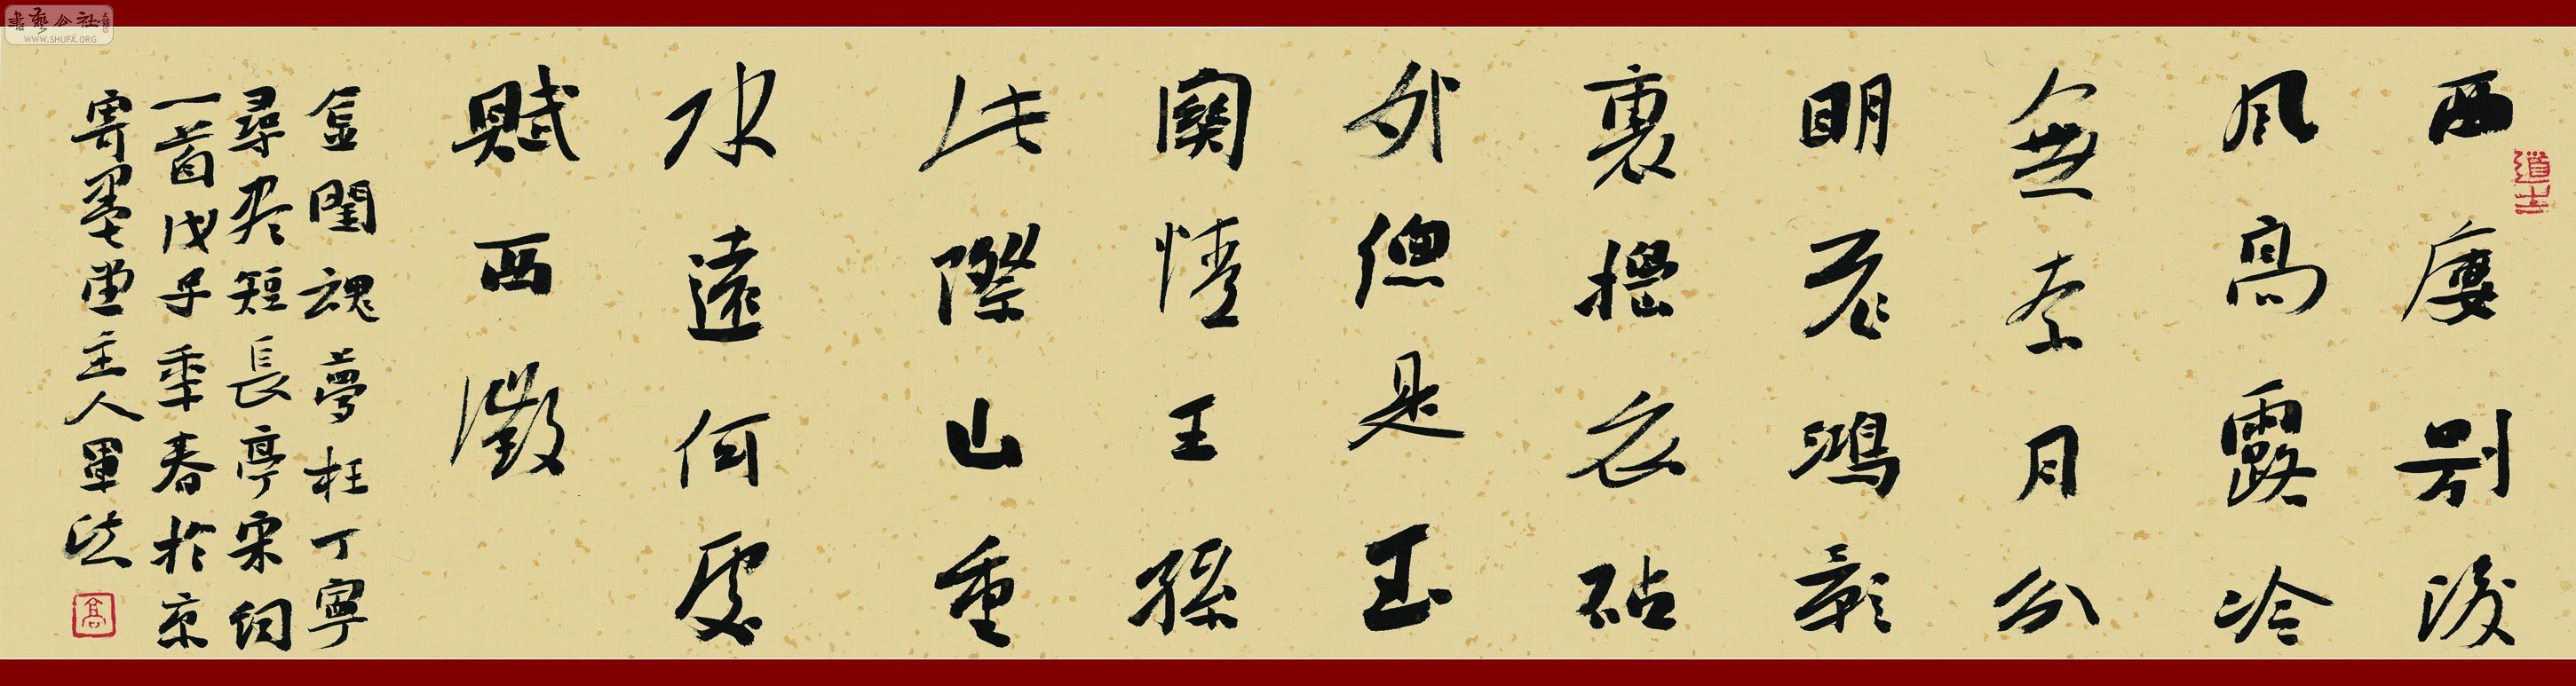 西廔别後
風髙露冷
無奈月分
明飛鴻影
裏擣衣砧
外總是玉
關情王孫
此際山重
水遠何處
賦西徵
金閨魂夢枉丁寧
尋盡短長亭宋词
一首戊子季春於京
寄墨堂主人軍法
道士
高
書藝公社
WWW.SHUFA.ORG